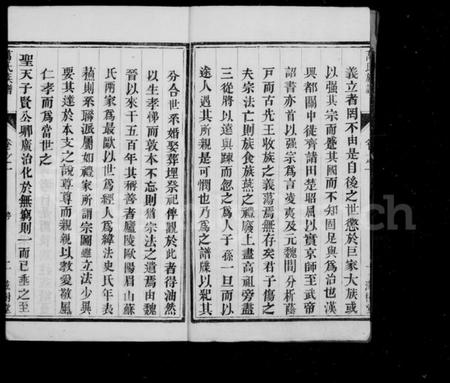 義立者罔不由是自後之世懲於巨家大族或
以強其宗而蹙其國而不知固足與為治也漢
興都關中徙齊諸田楚昭屈以實京師至武帝
詔書亦首以强宗為言凌夷及元魏間分析蔭
戸而古先王收族之義蕩焉無存矣君子傷之
夫宗法亡則族食族燕之禮廢上盡高祖旁盡
三從將以遠與疎而忽之為人子孫一旦而以
途人遇其所親是可憫也乃為之譜牒以紀其
分合世系婚娶葬埋祭祀俾觀於此者得油然
以生孝悌而敦本不忘則猶宗法之遺焉由魏
晉以來千五百年其稱善者廬陵歐陽眉山蘇
氏兩家為最歐以世為經人為緯法史氏年表
蘇則系聯派屬如禮家所謂宗圖雖立法少異
要其達於本支之說尊尊而親親以教愛敬風
仁孝而為當世之
聖天子賢公卿廣治化於無窮則一而已垂之至